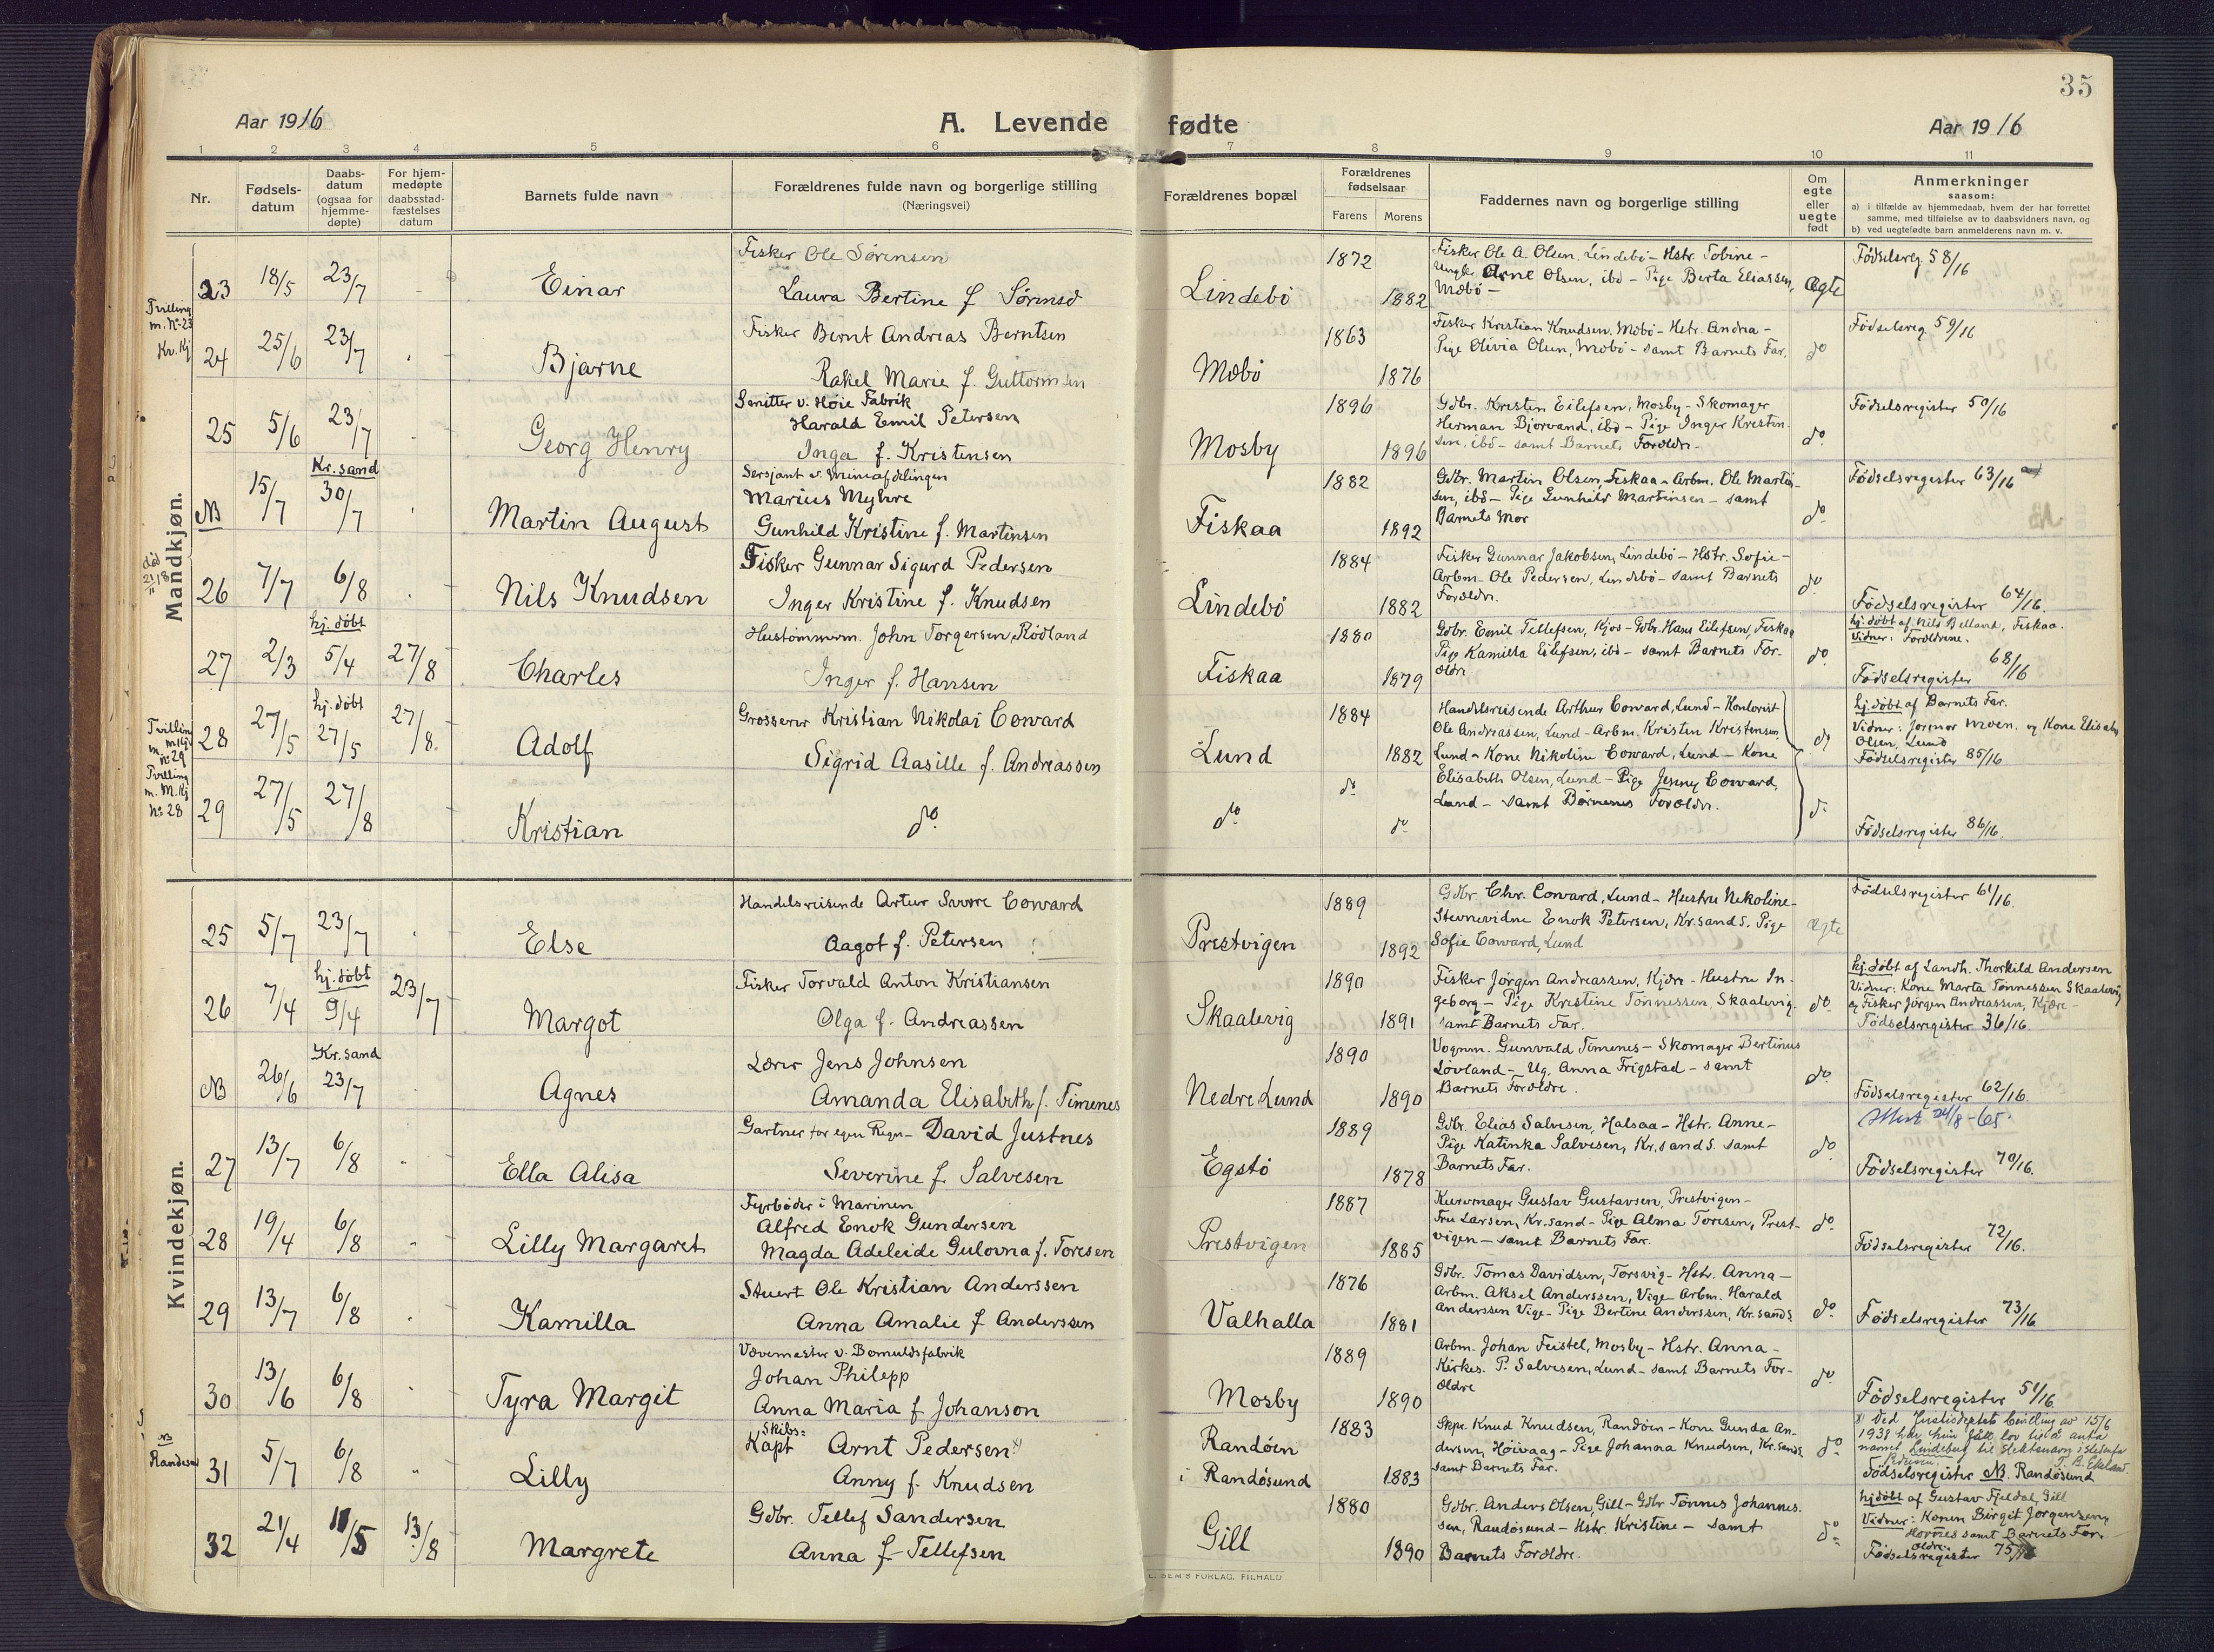 35
Aar 1916
A. Levende fødte
Aar 1916
1 2 3 4 5 6 7 8 9 10 11
Nr.
Fødsels-
datum
Daabs-
datum
(ogsaa for
hjemme-
døpte)
For hjem-
medøpte
daabsstad-
fæstelses
datum
Barnets fulde navn
Forældrenes fulde navn og borgerlige stilling
(Næringsvei)
Forældrenes bopæl
Forældrenes
fødselsaar
Farens
Morens
Faddernes navn og borgerlige stilling
Om
egte
eller
uegte
født
Anmerkninger
saasom:
a) i tilfælde av hjemmedaab, hvem der har forrettet
samme, med tilføielse av to daabsvidners navn, og
b) ved uegtefødte barn anmelderens navn m. v.
Mandkjøn.
23 18/5 23/7 - Einar
Fisker Ole Sørensen
Laura Bertine f. Sørensd
Lindebø 1872 1882
Fisker Ole A Olsen, Lindebø - Hstr. Tobine -
Ungk. Arne Olsen, ibd - Pige Berta Eliassen,
Mæbø -
Ægte
Fødselsreg. 58/16
Tvilling
m. No 23
Kv. Kj
24 25/6 23/7 Bjarne
Fisker Bernt Andreas Berntsen
Rakel Marie f. Guttormsen
Mæbø 1863 1876
Fisker Kristian Knudsen, Mæbø - Hstr. Andrea -
Pige Olivia Olsen, Mæbø - samt Barnets Far.
do
Fødselsreg. 59/16
25 5/6 23/7 - Georg Henry
Smitter v. Høie Fabrik
Harald Emil Petersen
Inga f. Kristensen
Mosby 1896 1896
Gdbr. Kristen Eilefsen, Mosby - Skomager
Herman Bjorvand, ibd - Pige Inger Kristen-
sen, ibd - samt Barnets Forældr.
do
Fødselsregister 50/16
NB 15/7 Kr.sand 30/7 Martin August
Sersjant v. Mineafdelingen
Marius Myhre
Gunhild Kristine f. Martinsen
Fiskaa 1882 1892
Gdbr. Martin Olsen, Fiskaa - Arbm. Ole Martin-
sen, ibd - Pige Gunhild Martinsen - samt
Barnets Mor
do
Fødselsregister 63/16
død
26 7/7 6/8 Nils Knudsen
Fisker Gunnar Sigurd Pedersen
Inger Kristine f. Knudsen
Lindebø 1884 1882
Fisker Gunnar Jakobsen, Lindebø - Hstr. Sofie -
Arbm. Ole Pedersen, Lindebø - samt Barnets
Forældr.
do
Fødselsregister 64/16.
27 2/3 hj. døbt 5/4 27/8 Charles
Hustømmerm. John Torgersen Rødland
Inger f. Hansen
Fiskaa 1880 1879
Gdbr. Emil Tellefsen, Kjos - Gdbr. Hans Eilefsen, Fiskaa
Pige Kamilla Eilefsen, ibd - samt Barnets For-
ældr
do
hj. døbt af Nils Belland, Fiskaa.
Vidner: Forældrene.
Fødselsregister 68/16
Tvilling
m. MKj.
No 29
28 27/5 hj. døbt 27/5 27/8. Adolf
Grosserer Kristian Nikolai Coward
Sigrid Aasille f. Andreassen
Lund 1884 1882
Handelsreisende Arthur Coward, Lund - Kontorist
Ole Andreassen, Lund - Arbm. Kristen Kristensen,
Lund - Kone Nikoline Coward, Lund - Kone
Elisabeth Olsen, Lund - Pige Jenny Coward,
Lund - samt Børnenes Forældr.
do
hj. døbt af Barnets Far.
Vidner: Jormor Moen, og Kone Elisabeth
Olsen, Lund
Fødselsregister 85/16
Tvilling
m. M. Kj
No 28
29 27/5 27/8 Kristian
do do do do do
Fødselsregister 86/16.
Kvindekjøn.
25 5/7 23/7 Else
Handelsreisende Artur Sverre Coward
Aagot f. Petersen
Prestvigen 1889 1892
Gdbr Chr. Coward, Lund - Hustru Nikoline -
Stevnevidne Enok Petersen, Kr.sand S. Pige
Sofie Coward, Lund
Ægte
Fødselsregister 61/16.
26 7/4 hj. døbt 9/4 23/7 Margot
Fisker Torvald Anton Kristiansen
Olga f. Andreassen
Skaalevig 1890 1891
Fisker Jørgen Andreassen, Kjære - Hustru In-
geborg - Pige Kristine Tønnessen, Skaalevig.
samt Barnets Far.
do
hj. døbt af Landh. Thorkild Andersen
Vidner: Kone Marta Tønnessen Skaalevig
og Fisker Jørgen Andreassen, Kjære -
Fødselsregister 36/16.
NB 26/6 Kr.sand 23/7 Agnes
Lærer Jens Johnsen
Amanda Elisabeth f. Timenes
Nedre Lund 1890 1890
Vognm. Gunvald Timenes - Skomager Bertinus
Løvland - Ug. Anna Frigstad - samt
Barnets Forældre.
do
Fødselsregister 62/16.
Attest 24/8-65.
27 13/7 6/8 Ella Alisa
Gartner for egen Regn - David Justnes
Severine f. Salvesen
Egstø 1889 1878
Gdbr. Elias Salvesen, Halsaa - Hstr. Anne -
Pige Katinka Salvesen, Kr.sand S. samt
Barnets Far.
do
Fødselsregister 70/16.
28 19/4 6/8 Lilly Margaret
Fyrbøder i Marinen
Alfred Enok Gundersen
Magda Adeleide Gulovna f. Toresen
Prestvigen 1887 1885
Kurvmager Gustav Gustavsen, Prestvigen -
Fru Larsen, Kr.sand - Pige Alma Toresen, Prest-
vigen - samt Barnets Far.
do
Fødselsregister 72/16.
29 13/7 6/8 Kamilla
Stuert Ole Kristian Anderssen
Anna Amalie f. Anderssen
Valhalla 1876 1881
Gdbr. Tomas Davidsen, Torsvig - Hstr. Anna -
Arbm. Aksel Anderssen, Vige - Arbm. Harald
Anderssen Vige - Pige Bertine Anderssen, Kr.sand S.
do
Fødselsregister 73/16
30 13/6 6/8 Tyra Margit
Vævemester v. Bomuldsfabrik
Johan Philepp
Anna Maria f. Johanson
Mosby 1889 1890
Arbm. Johan Feistel, Mosby - Hstr. Anna -
Kirkes. P. Salvesen, Lund - samt Barnets For-
ældre
do
Fødselsregister 51/16.
NB
Randøsund
31 5/7 6/8 Lilly
Skibs=
Kapt Arnt Pedersen x)
Anny f. Knudsen
Randøen
i Randøsund 1883 1883
Skpr. Knud Knudsen, Randøen - Kone Gunda An-
dersen, Høivaag - Pige Johanna Knudsen, Kr.sand S.
samt Barnets Far.
do
x) Ved Justisdeptets bevilling av 15/6
1938 har hun fått lov til å anta
namnet Lindeberg til slektsnavn istedenfor
Pedersen.
Fødselsregister NB. Randøsund
32 21/4 11/5 13/8 Margrete
Gdbr. Tellef Sandersen
Anna f. Tellefsen
Gill 1880 1890
Gdbr. Anders Olsen, Gill - Gdbr Tønnes Johannes-
sen, Randøsund - Hstr. Kristine - samt
Barnets Forældre.
do
hj døbt af Gustav Fjeldal, Gill
Vidner: Konen Birgit Jørgensen,
Hovnes samt Barnets For-
ældre.
Fødselsregister 75/16